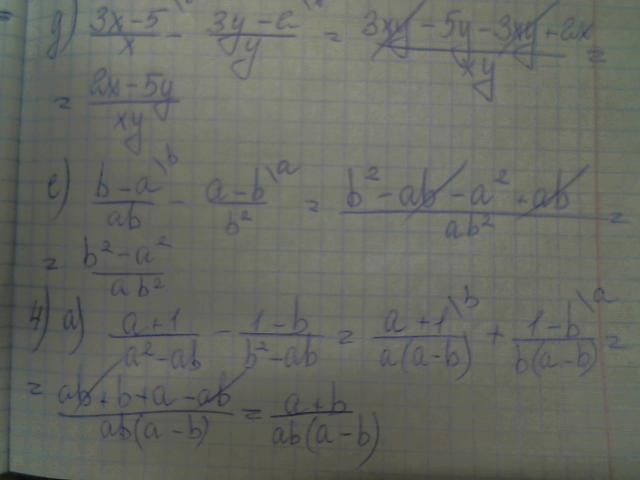 д) (3x-5)/x \y - (3y-2)/y \x = (3xy-5y-3xy+2x)/xy =
= (2x-5y)/xy
е) (b-a)/ab \b - (a-b)/b² \a = (b²-ab-a²+ab)/ab² =
= (b²-a²)/ab²
4) а) (a+1)/(a²-ab) - (1-b)/(b²-ab) = (a+1)/(a(a-b)) \b + (1-b)/(b(a-b)) \a =
= (ab+b+a-ab)/(ab(a-b)) = (a+b)/(ab(a-b))